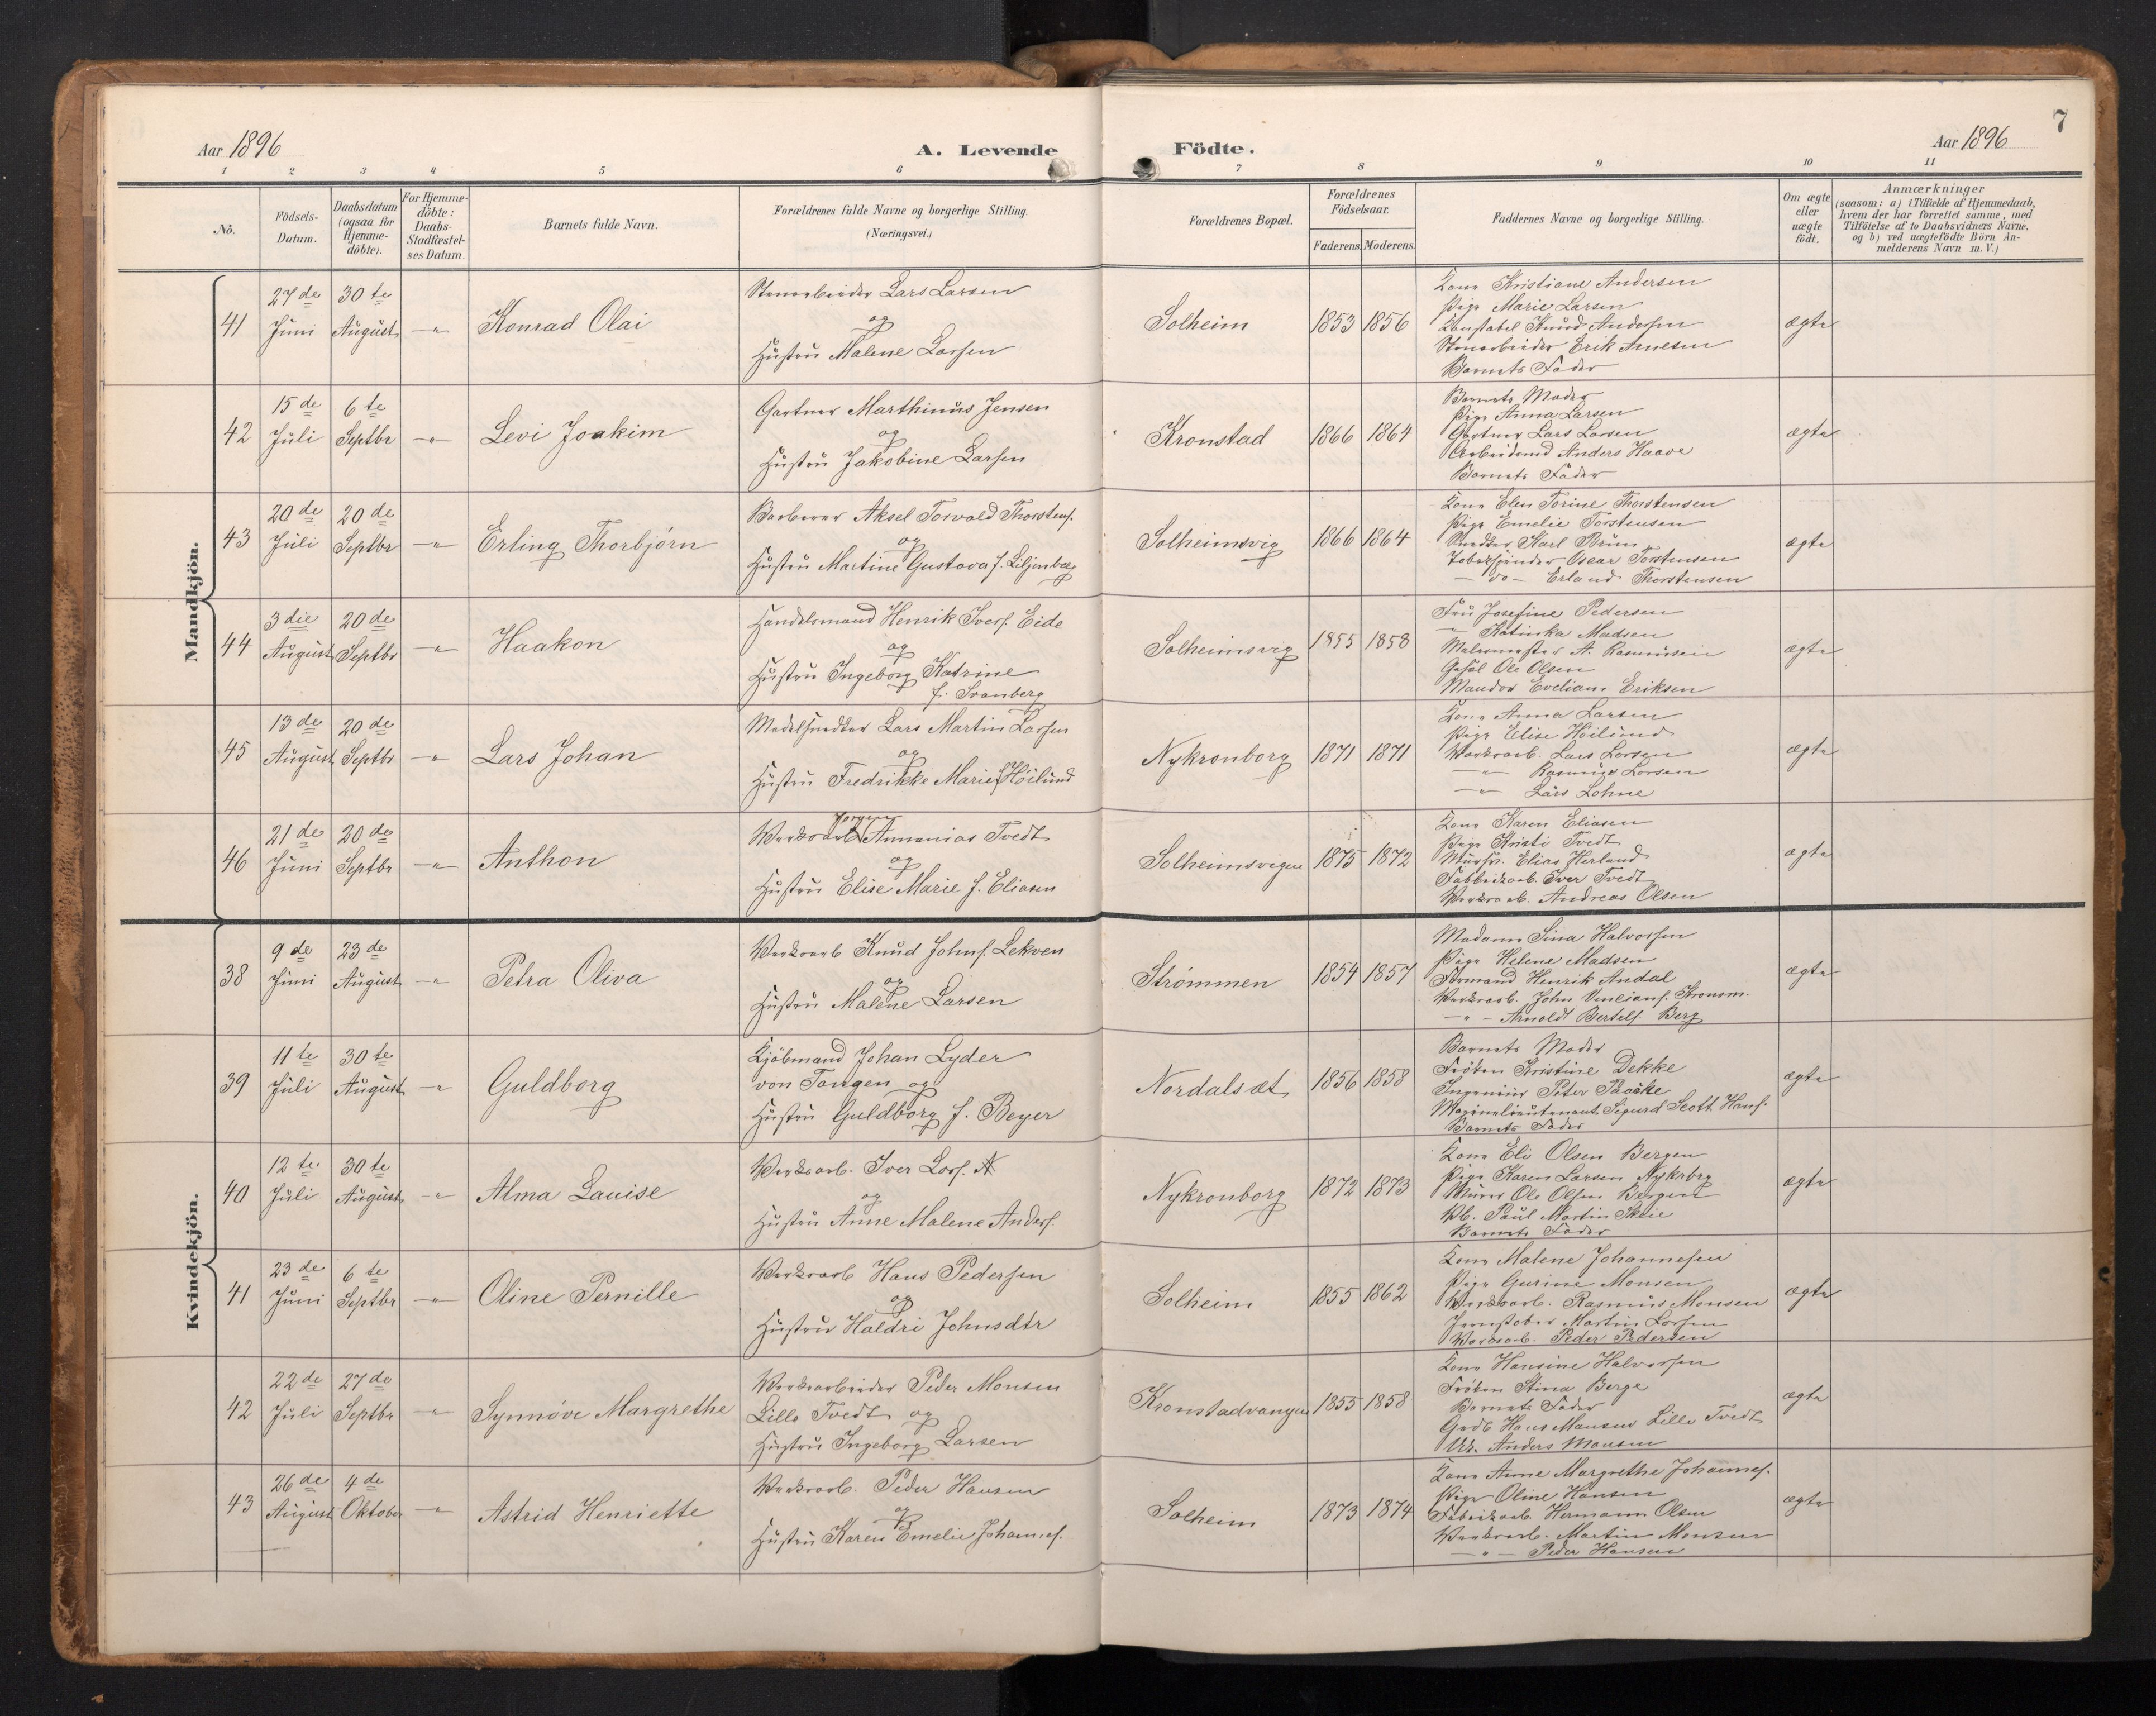 Aar 1896
A. Levende Födte.
Aar 1896
7
1 2 3 4 5 6 7 8 9 10 11
No.
Födsels-Datum.
Daabsdatum (ogsaa for Hjemme-döbte).
For Hjemme-döbte: Daabs-Stadfæstel-ses Datum.
Barnets fulde Navn.
Forældrenes fulde Navne og borgerlige Stilling.
(Næringsvei.)
Forældrenes Bopæl.
Forældrenes Födselsaar.
Faderens. Moderens.
Faddernes Navne og borgerlige Stilling.
Om ægte eller uægte födt.
Anmærkninger
(saasom: a) i Tilfælde af Hjemmedaab,
hvem der har forrettet samme, med
Tilföielse af to Daabsvidners Navne,
og b) ved uægtefödte Börn An-
melderens Navn m. V.)
Mandkjön.
41 27de Juni 30te August -"- Konrad Olai
Stenarbeider Lars Larsen
og
Hustru Malene Larsen
Solheim 1853 1856
Kone Kristiane Andersen
Pige Marie Larsen
Konstabel Knud Andersen
Stenarbeider Erik Arnesen
Barnets Fader
ægte
42 15de Juli 6te Septbr -"- Levi Joakim
Gartner Marthinus Jensen
og
Hustru Jakobine Larsen
Kronstad 1866 1864
Barnets Moder
Pige Anna Larsen
Gartner Lars Larsen
Arbeidsmd Anders Haave
Barnets Fader
ægte
43 20de Juli 20de Septbr -"- Erling Thorbjörn
Barberer Aksel Torvald Thorstens.
og
Hustru Martine Gustava f. Liljenberg
Solheimsvig 1866 1864
Kone Elen Torine Thorstensen
Pige Emelie Torstensen
Snedker Karl Bruun
Tobakspinder Oscar Torstensen
- do - Erland Thorstensen
ægte
44 3die August 20de Septbr -"- Haakon
Handelsmand Henrik Ivers. Eide
og
Hustru Ingeborg Katrine
f. Svanberg
Solheimsvig 1855 1858
Fru Josefine Pedersen
" Katinka Madsen
Malermester A. Rasmussen
Ole Olsen
Eriksen
ægte
45 13de August 20de Septbr -"- Lars Johan
Modelsnedker Lars Martin Larsen
og
Hustru Fredrikke Marie f Höilund
Nykronborg 1871 1871
Kone Anna Larsen
Pige Elise Höilund
Værksarb. Lars Larsen
-"- Rasmus Larsen
-"- Lars Lohne
ægte
46 21de Juni 20de Septbr -"- Anthon
Jörgen
Værksarb Annanias Tvedt
og
Hustru Elise Marie f. Eliasen
Solheimsvigen 1875 1872
Kone Karen Eliasen
Pige Kristi Tvedt
Elias Herland
Fabrikarb. Iver Tvedt
Værksarb. Andreas Olsen
ægte
Kvindekjön.
38 9de Juni 23de August -"- Petra Oliva
Værksarb Knud Johns. Lekven
og
Hustru Malene Larsen
Strömmen 1854 1857
Madame Sina Halvorsen
Pige Helene Madsen
Formand Henrik Andal
Værksarb. John
-"- Arnoldt Bertels. Berg
ægte
39 11te Juli 30te August -"- Guldborg
Kjöbmand Johan Lyder
von Tangen og
Hustru Guldborg f. Beyer
Nordalsæt 1856 1858
Barnets Moder
Fröken Kristine Dekke
Ingeniör Peter
Marinelieutenant Sigurd Scott Hans.
Barnets Fader
ægte
40 12te Juli 30te August -"- Alma Lauise
Værksarb. Iver Lars. N
og
Hustru Anne Malene Anders.
Nykronborg 1872 1873
Kone Eli Olsen Bergen
Pige Karen Larsen Nykrbrg
Murer Ole Olsen Bergen
Vb. Paul Martin Skeie
Barnets Fader
ægte
41 23de Juni 6te Septbr -"- Oline Pernille
Værksarb Hans Pedersen
og
Hustru Haldri Johnsdtr
Solheim 1855 1862
Kone Malene Johannesen
Pige Gurine Monsen
Værksarb. Rasmus Monsen
Jernstöber Martin Larsen
Værksarb. Peder Pedersen
ægte
42 22de Juli 27de Septbr -"- Synnöve Margrethe
Værksarbeider Peder Monsen
Lille Tvedt og
Hustru Ingeborg Larsen
Kronstadvangen 1855 1858
Kone Hansine Halvorsen
Fröken Stina Berge
Barnets Fader
Grdb Hans Monsen Lille Tvedt
Anders Monsen
ægte
43 26de August 4de Oktober -"- Astrid Henriette
Værksarb. Peder Hansen
og
Hustru Karen Emelie Johannes.
Solheim 1873 1874
Kone Anne Margrethe Johannes.
Pige Oline Hansen
Fabrikarb. Hermann Olsen
Værksarb. Martin Monsen
-"- Peder Hansen
ægte